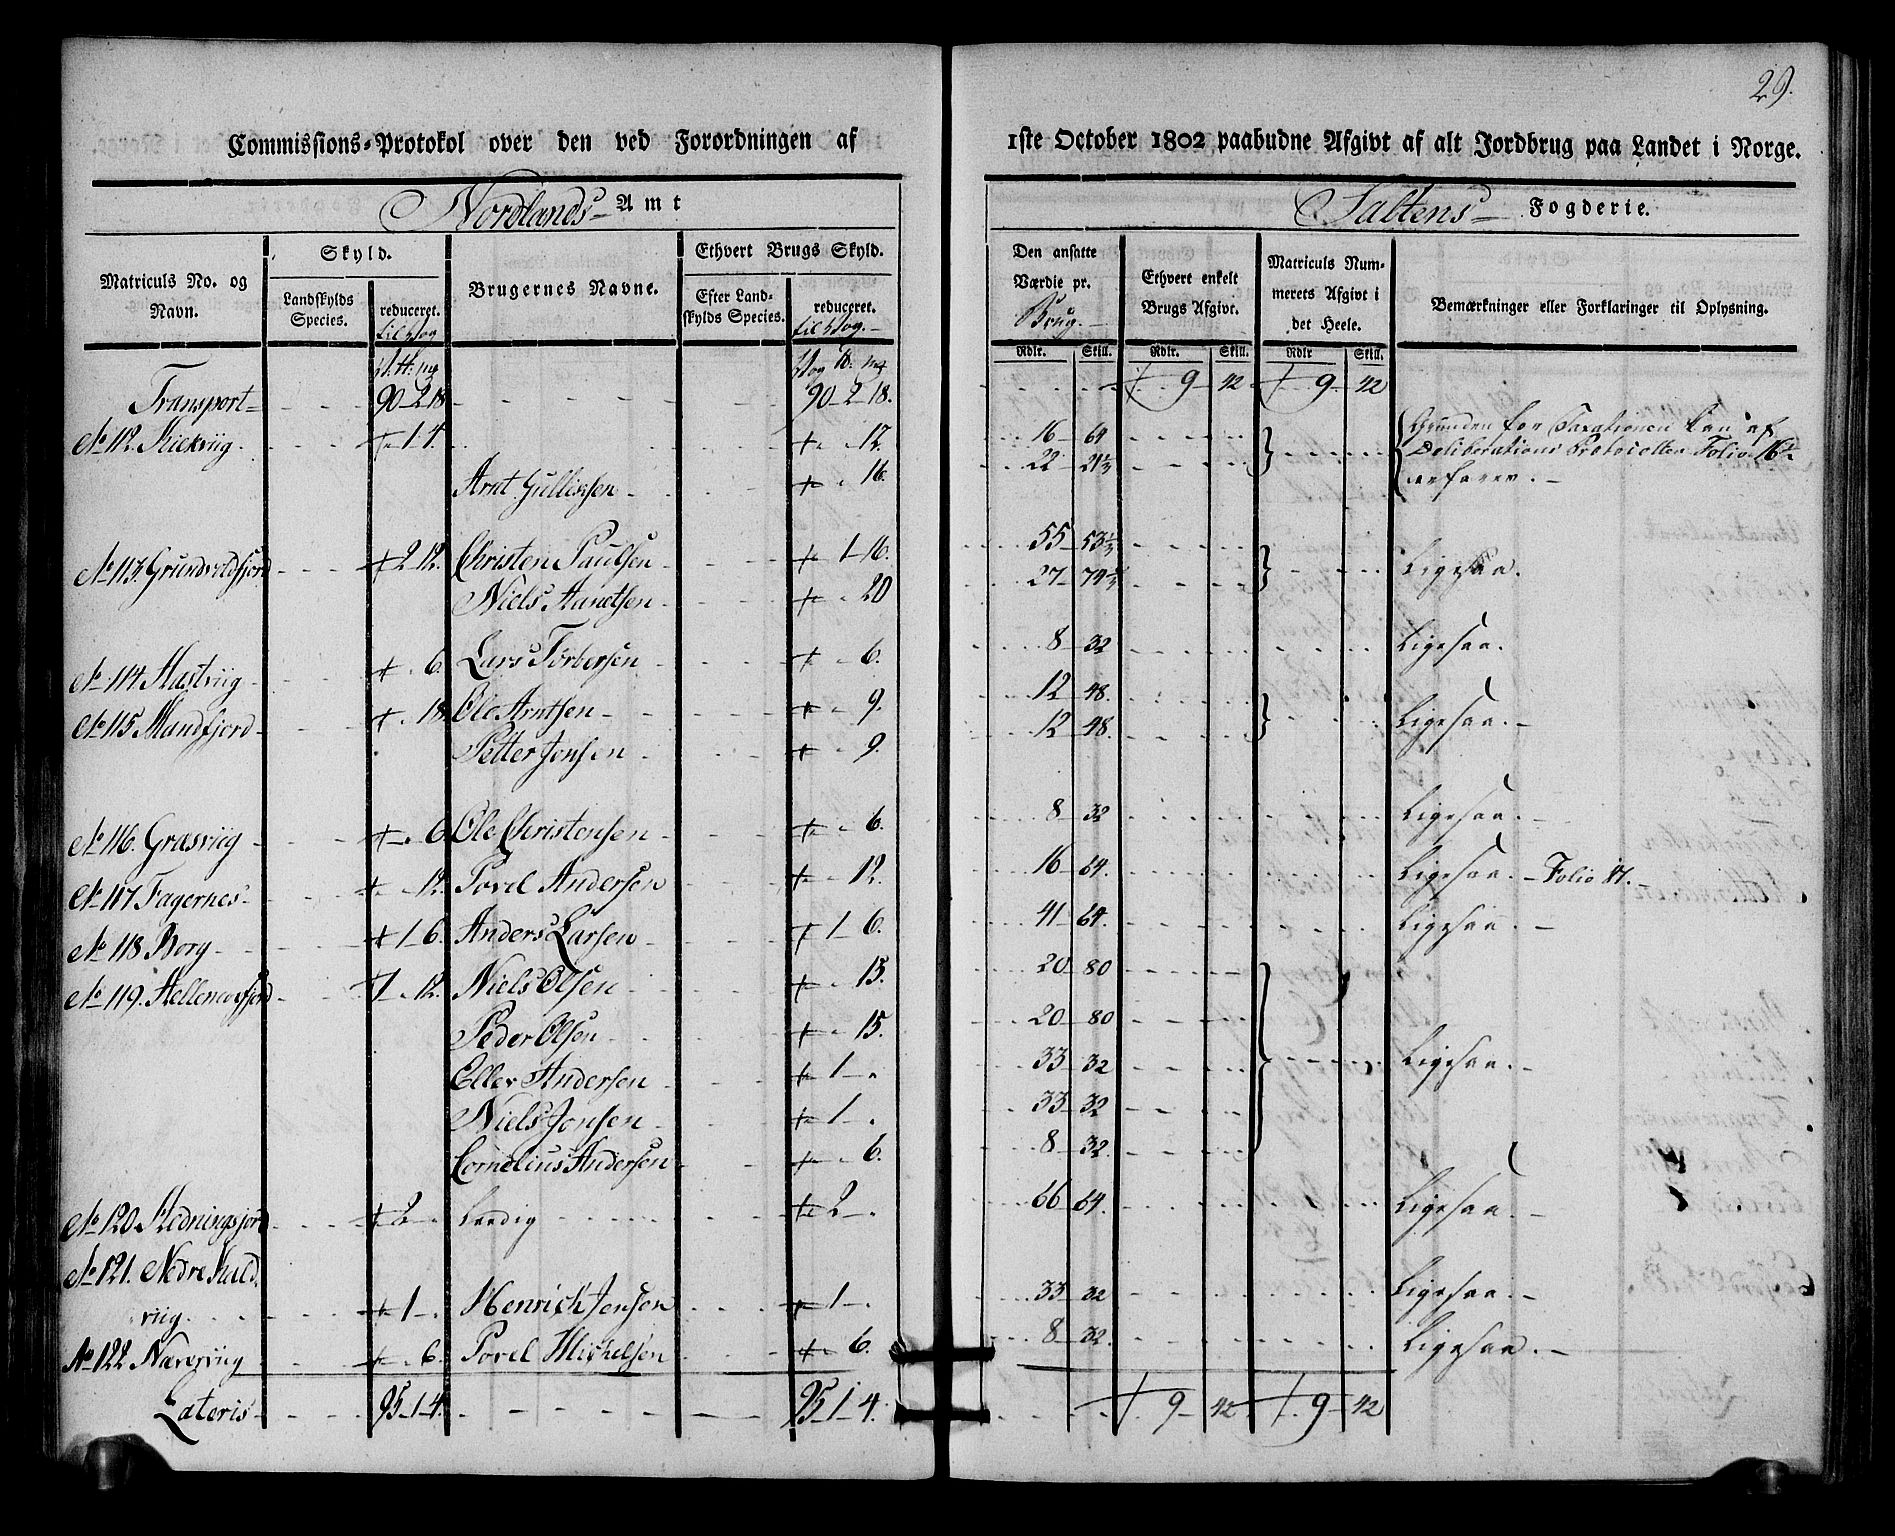 29.
Commissions-Protokol over den ved Forordningen af 1ste October 1802 paabudne Afgivt af alt Jordbrug paa Landet i Norge.
Nordlands Amt Saltens Fogderie.
Matriculs No. og Navn. Skyld. Landskylds Species. reduceret. til Vog Brugernes Navne. Ethvert Brugs Skyld. Efter Landskylds Species. reduceret. til Vog. Den ansatte Værdie pr. Brug. Ethvert enkelt Brugs Afgivt. Matriculs Nummerets Afgivt i det Heele. Bemærkninger eller Forklaringer til Oplysning.
Rdlr. Skill. Rdlr. Skill. Rdlr Skill.
Transport 90 2 18 90 2 18. 9 42 9 42
No 112. 1 4. 12. 16 64 Grunden for Taxationen kan af
Arnt Gullichsen 16. 22 21⅓ Deliberations Protocollen Folio 16
erfares.
No 113. Grundvildfjord 2 12. Christen Paulsen 1 16. 55 53⅓ Ligesaa.
Niels Aanetsen 20 27 74⅔
No 114 Hastviig 6. Lars Torbersen 6. 8 32 Ligesaa.
No 115 Mandfjord 18 Ole Arntsen 9. 12 48. Ligesaa.
Petter Jonsen 9. 12 48.
No 116. Græsviig 6 Ole Christensen 6. 8 32 Ligesaa.
No 117 Fagernes 12. Povel Andersen 12. 16 64. Ligesaa. Folio 17.
No 118 Borg 1 6. Anders Larsen 1 6. 41 64. Ligesaa.
No 119. Hellemosfjord 7 12. Niels Olsen 15. 20 80
Peder Olsen 15. 20 80
Eller Andersen 1 33 32 Ligesaa.
Niels Jonsen 1 33 32
Cornelius Andersen 6. 8 32.
No 120 2 Leedig 2 66 64. Ligesaa.
No 121. Nedre
viig. 1 Henrich Jensen 1 33 32 Ligesaa.
No 122 Næresviig 6. Povel Michelsen 6. 8 32. Ligesaa.
Lateris 95 1 4. 95 1 4. 9 42 9 42